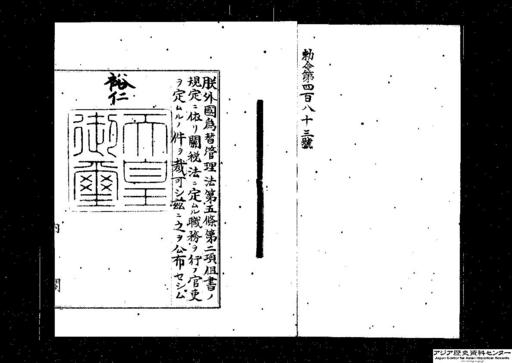 勅令第四百八十三號
朕外國為替管理法第五條第二項但書ノ
規定ニ依リ關税法ニ定ムル職務ヲ行フ官吏
ヲ定ムルノ件ヲ裁可シ茲ニ之ヲ公布セシム
裕仁
天皇
御璽
内閣
アジア歴史資料センター
Japan Center for Asian Historical Records